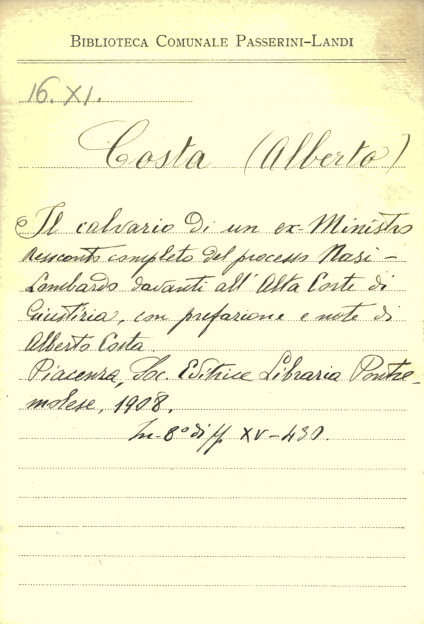 BIBLIOTECA COMUNALE PASSERINI-LANDI
16. XI.
Costa (Alberto)
Il calvario di un ex-Ministro
Resoconto completo del processo Nasi-
Lombardo davanti all'Alta Corte di
Giustizia, con prefazione e note di
Alberto Costa.
Piacenza, Soc. Editrice Libraria Pontre-
molese, 1908.
In-8° di pp. XV-430.